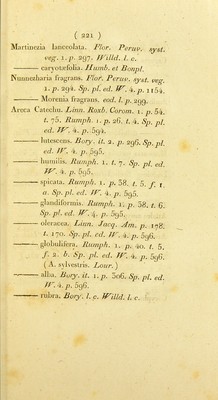 ( 221 )
Martinezia lanceolata. Flor. Peruv. syst.
veg. 1. p. 297. Willd. l. c.
——— caryotæfolia. Humb. et Bonpl.
Nunnezharia fragrans. Flor. Peruv. syst. veg.
2. p. 294. Sp. pl. ed. W. 4. p. 1154.
——— Morenia fragrans. eod. l. p. 299.
Areca Catechu. Linn. Roxb. Corom. 1. p. 54.
t. 75. Rumph. 1. p. 26. t. 4. Sp. pl.
ed. W. 4. p. 594.
——— lutescens. Bory. it. 2. p. 296. Sp. pl.
ed. W. 4. p. 595.
——— humilis. Rumph. 1. t. 7. Sp. pl. ed.
W. 4. p. 595.
——— spicata. Rumph. 1. p. 38. t. 5. f. 1.
a. Sp. pl. ed. W. 4. p. 595.
——— glandiformis. Rumph. 1. p. 38. t. 6.
Sp. pl. ed. W. 4. p. 595.
——— oleracea. Linn. Jacq. Am. p. 178.
t. 170. Sp. pl. ed. W. 4. p. 596.
——— globulifera. Rumph. 1. p. 40. t. 5.
f. 2. b. Sp. pl. ed. W. 4. p. 596.
( A. sylvestris. Lour. )
——— alba. Bory. it. 1. p. 306. Sp. pl. ed.
W. 4. p. 596.
——— rubra. Bory. l. c. Willd. l. c.